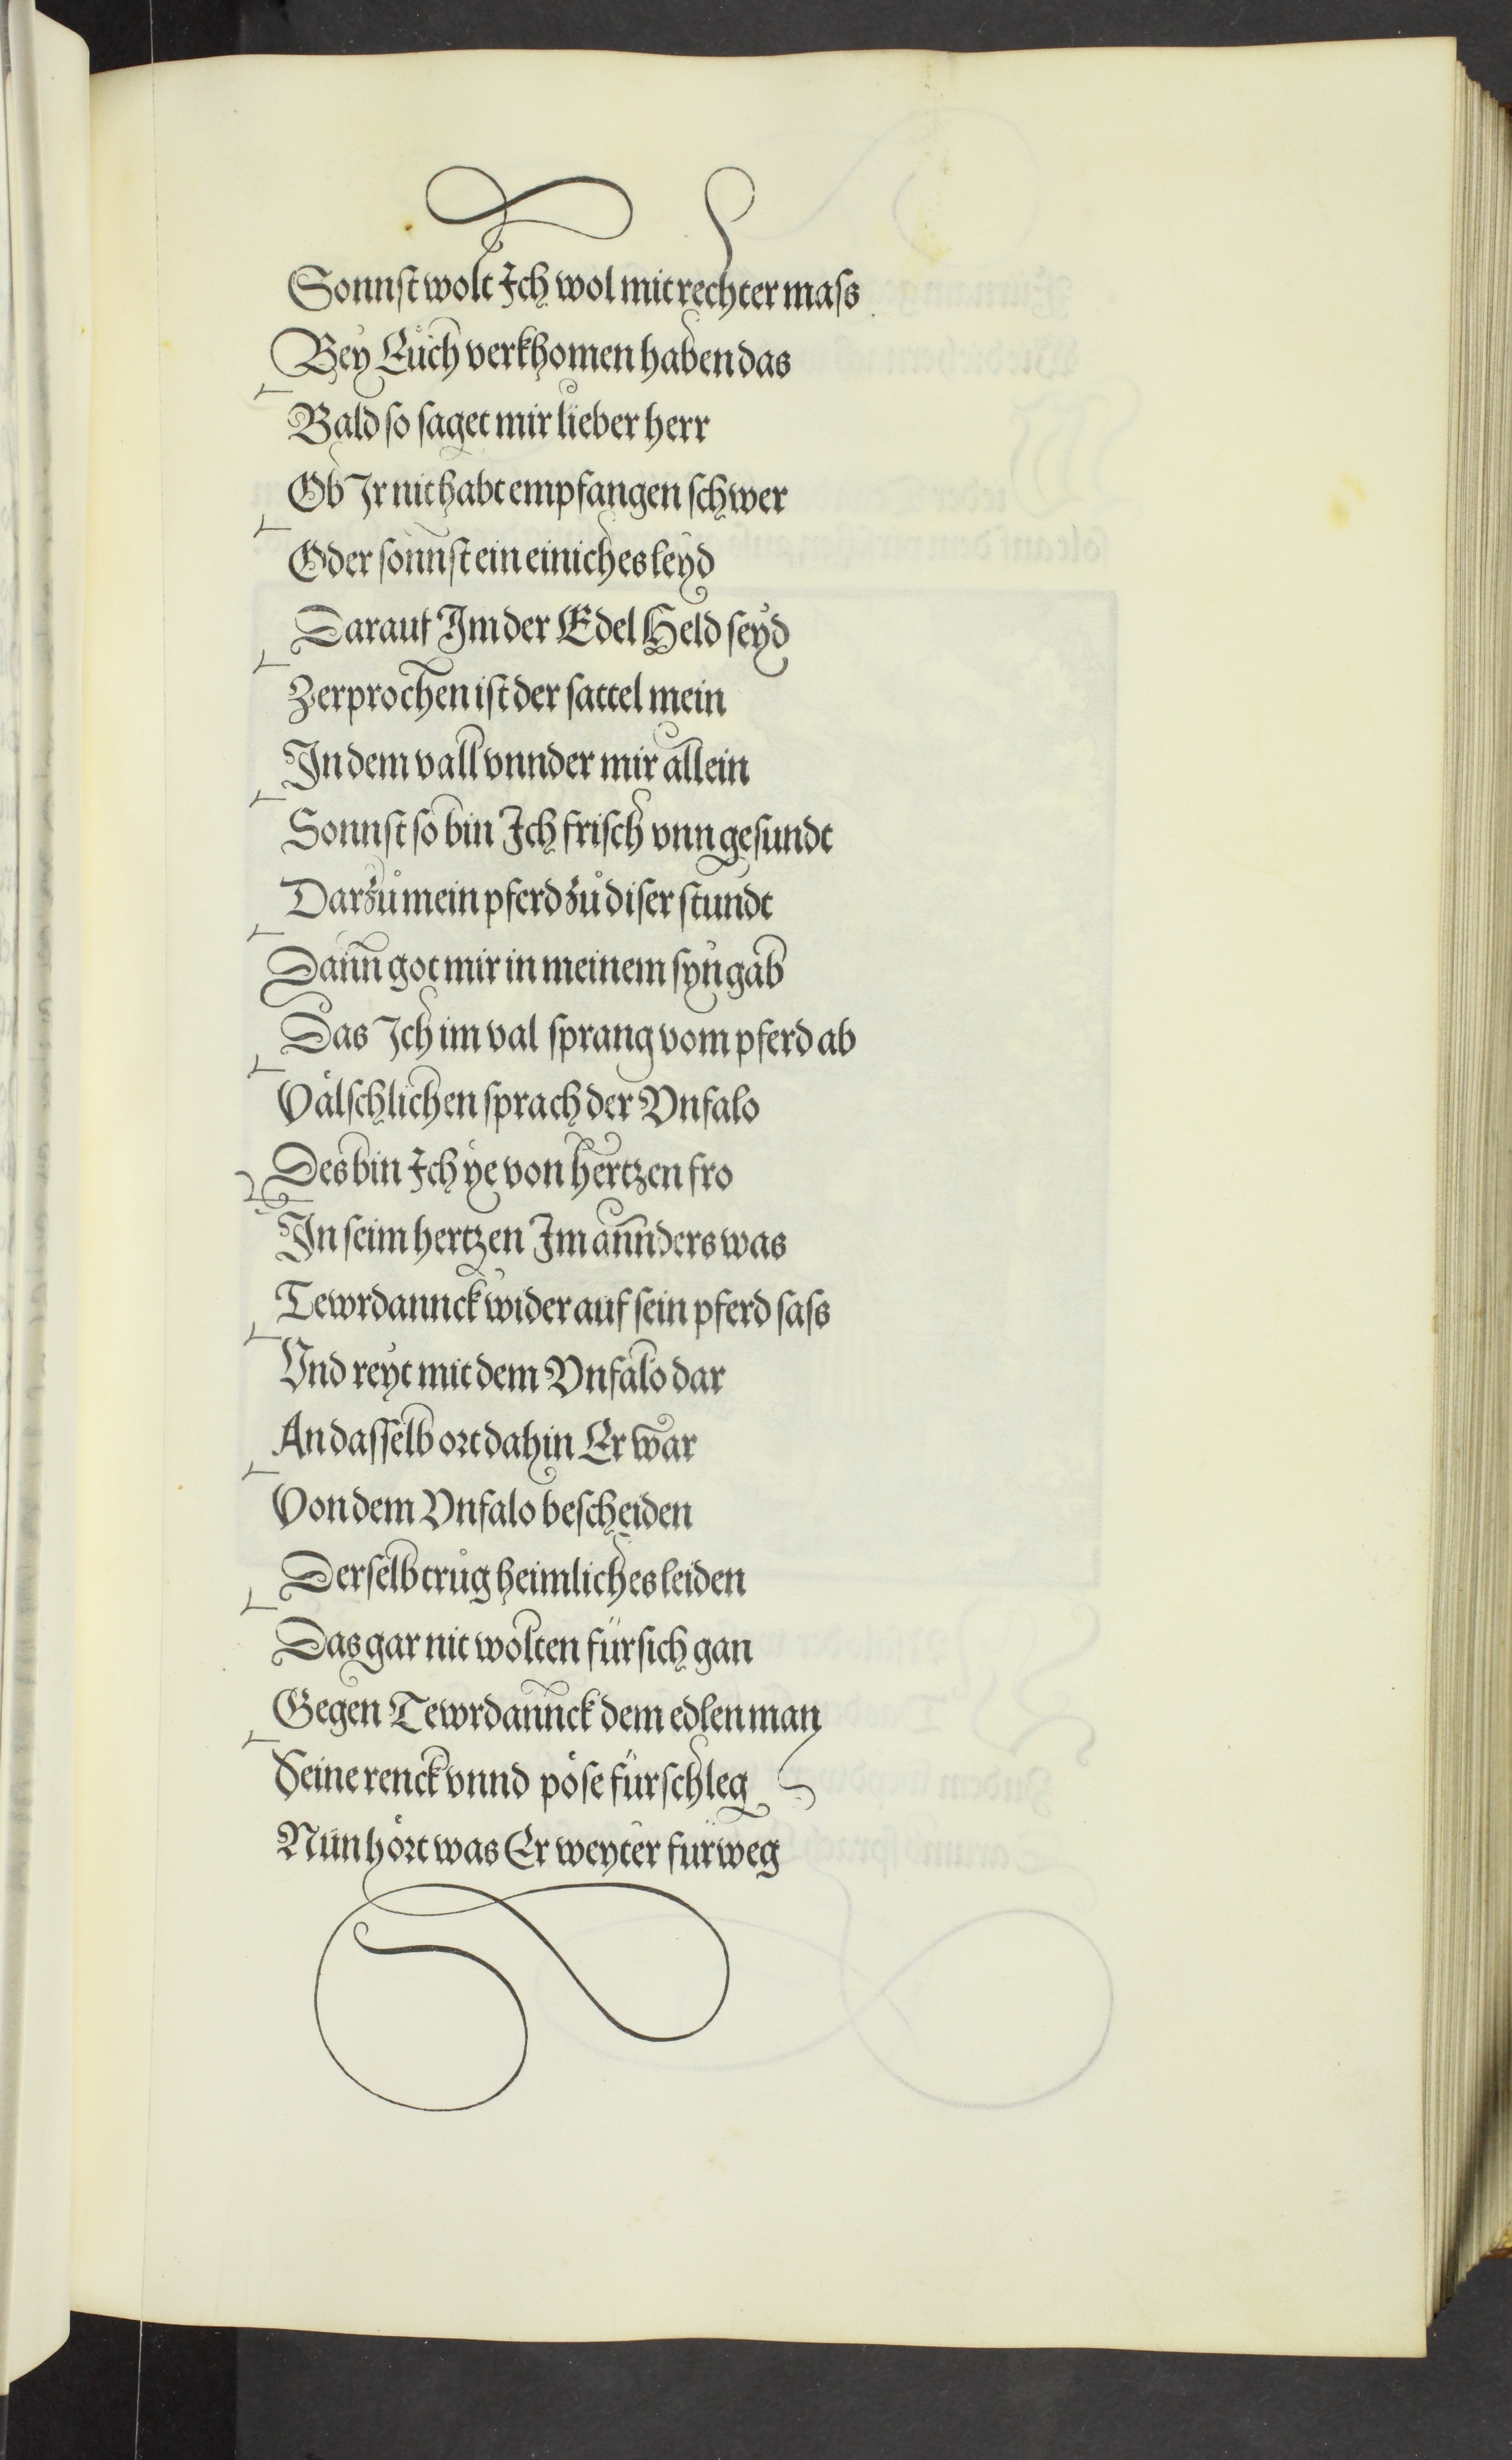 Sonnſt wolt Ich wol mit rechter maſs
Bey Eůch verkhomen haben das
Bald ſo ſaget mir lieber herr
Ob Ir nit habt empfangen ſchwer
Oder ſonnſt ein einiches leyd
Darauf Im der Edel Held ſeyd
Zerprochen iſt der ſattel mein
In dem vall vnnder mir allein
Sonnſt ſo bin Ich friſch vnn geſundt
Darzů mein pferd zů diſer ſtundt
Dann got mir in meinem ſyn gab
Das Ich im val ſprang vom pferd ab
Välſchlichen ſprach der Vnfalo
Des bin Ich ye von hertzen fro
In ſeim hertzen Im annders was
Tewrdannck wider auf ſein pferd ſaſs
Vnd reyt mit dem Vnfalo dar
An daſſelb ort dahin Er war
Von dem Vnfalo beſcheiden
Derſelb trůg heimliches leiden
Das gar nit wolten für ſich gan
Gegen Tewrdannck dem edlen man
Seine renck vnnd pöſe fürſchleg
Nun hört was Er weyter fürweg